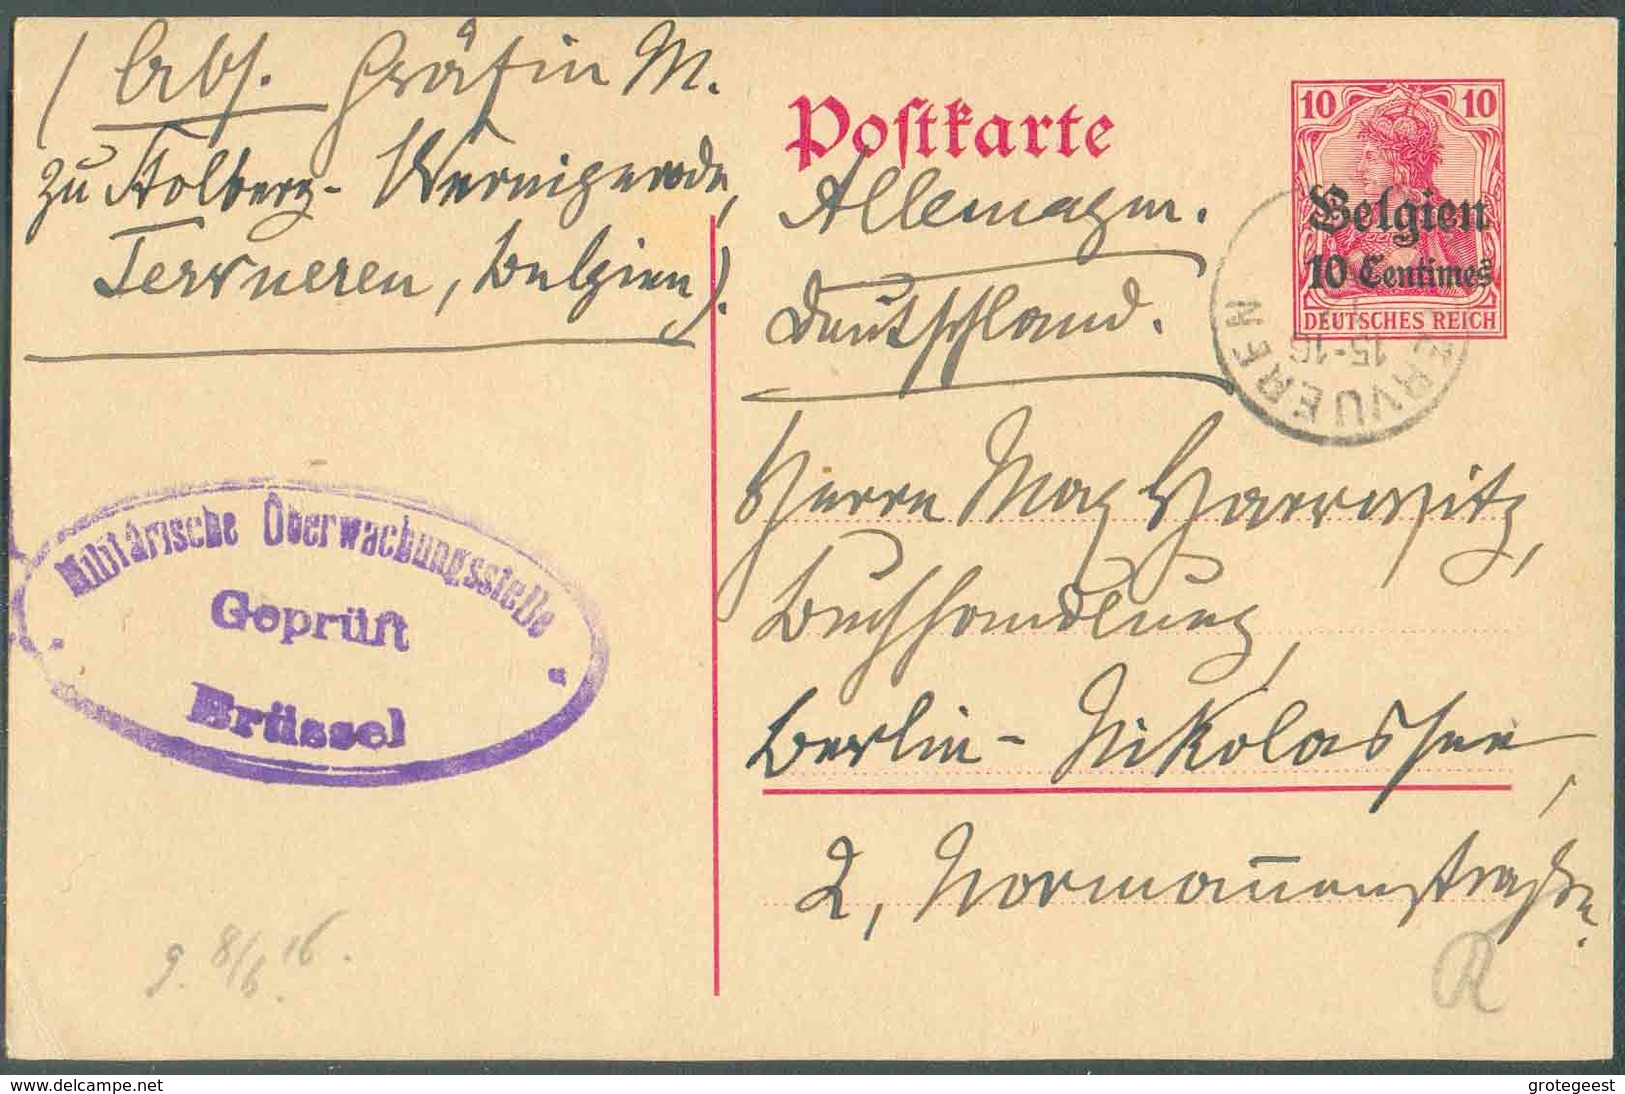 (Abs. Gräfin M.
zu Stolberg-Wernigerode,
Tervueren, Belgien).
Postkarte
10 10
Belgien
10 Centimes
DEUTSCHES REICH
TERVUEREN
15-16
Allemagne.
Deutschland.
Herrn Max Harrwitz,
Buchhandlung,
Berlin-Nikolassee,
2, Normannenstraße.
Militärische Überwachungsstelle
Geprüft
Brüssel
g. 8/6. 16.
R
www.delcampe.net
grotegeest